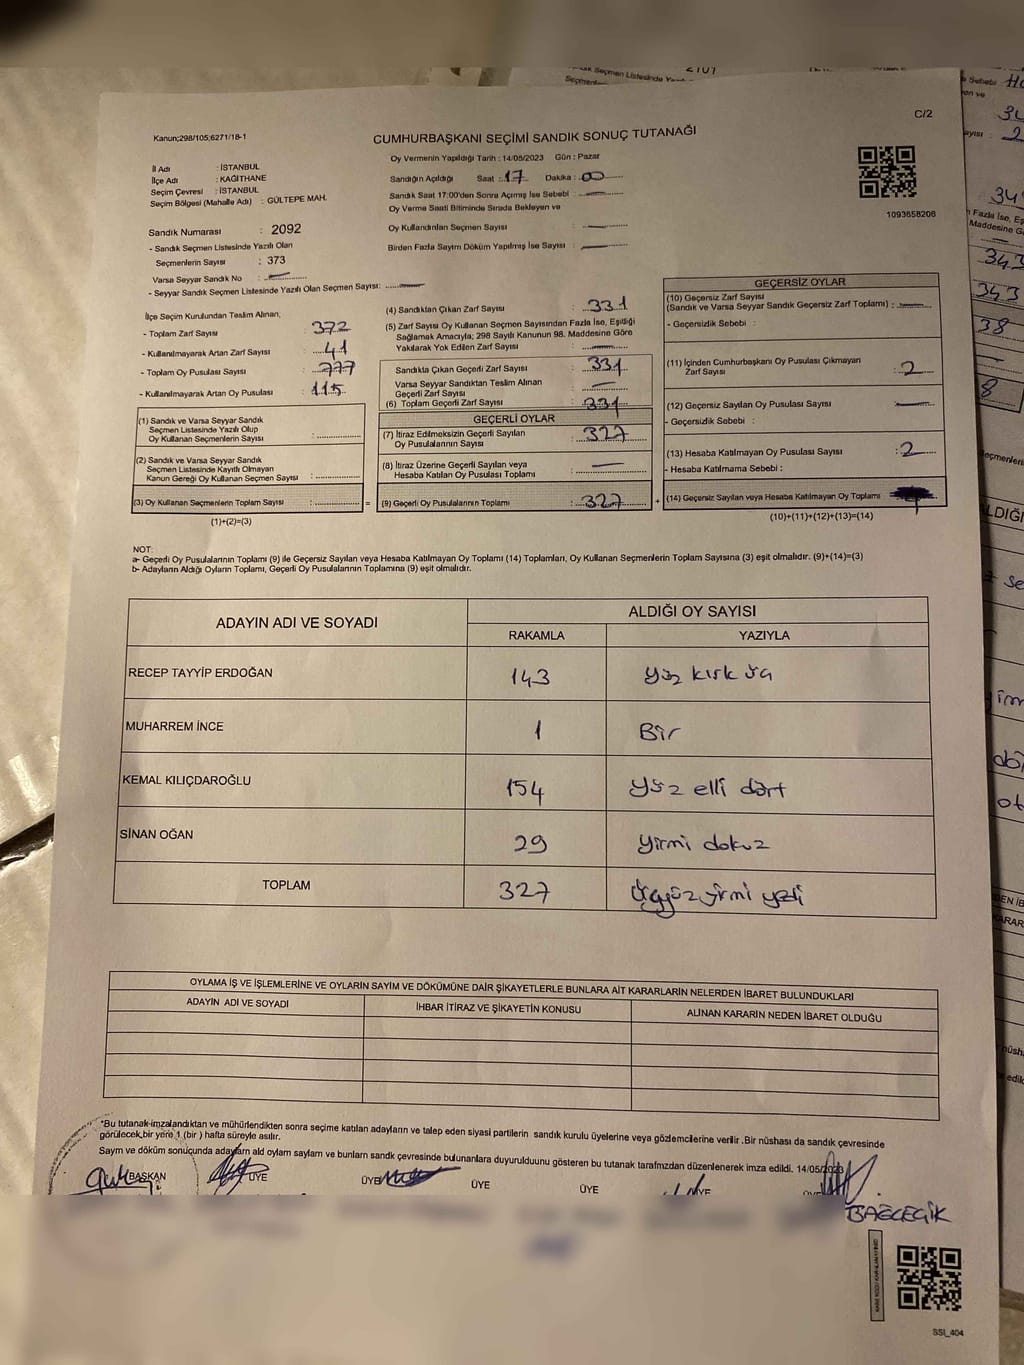 Kanun;298/105;6271/18-1
C/2
CUMHURBAŞKANI SEÇİMİ SANDIK SONUÇ TUTANAĞI
İl Adı : İSTANBUL
İlçe Adı : KAĞITHANE
Seçim Çevresi : İSTANBUL
Seçim Bölgesi (Mahalle Adı) : GÜLTEPE MAH.
Oy Vermenin Yapıldığı Tarih : 14/05/2023 Gün : Pazar
Sandığın Açıldığı Saat : 17 Dakika : 00
Sandık Saat 17:00'den Sonra Açılmış İse Sebebi :
Oy Verme Saati Bitiminde Sırada Bekleyen ve
Oy Kullandırılan Seçmen Sayısı :
Birden Fazla Sayım Döküm Yapılmış İse Sayısı :
1093658206
Sandık Numarası : 2092
- Sandık Seçmen Listesinde Yazılı Olan
Seçmenlerin Sayısı : 373
Varsa Seyyar Sandık No :
- Seyyar Sandık Seçmen Listesinde Yazılı Olan Seçmen Sayısı:
İlçe Seçim Kurulundan Teslim Alınan;
- Toplam Zarf Sayısı : 372
- Kullanılmayarak Artan Zarf Sayısı : 41
- Toplam Oy Pusulası Sayısı : 777
- Kullanılmayarak Artan Oy Pusulası : 115
(1) Sandık ve Varsa Seyyar Sandık
Seçmen Listesinde Yazılı Olup
Oy Kullanan Seçmenlerin Sayısı :
(2) Sandık ve Varsa Seyyar Sandık
Seçmen Listesinde Kayıtlı Olmayan
Kanun Gereği Oy Kullanan Seçmen Sayısı :
(3) Oy Kullanan Seçmenlerin Toplam Sayısı : =
(1)+(2)=(3)
(4) Sandıktan Çıkan Zarf Sayısı : 331
(5) Zarf Sayısı Oy Kullanan Seçmen Sayısından Fazla İse, Eşitliği
Sağlamak Amacıyla; 298 Sayılı Kanunun 98. Maddesine Göre
Yakılarak Yok Edilen Zarf Sayısı :
Sandıkta Çıkan Geçerli Zarf Sayısı : 331
Varsa Seyyar Sandıktan Teslim Alınan
Geçerli Zarf Sayısı :
(6) Toplam Geçerli Zarf Sayısı : 331
GEÇERLİ OYLAR
(7) İtiraz Edilmeksizin Geçerli Sayılan
Oy Pusulalarının Sayısı : 327
(8) İtiraz Üzerine Geçerli Sayılan veya
Hesaba Katılan Oy Pusulası Toplamı :
(9) Geçerli Oy Pusulalarının Toplamı : 327 +
GEÇERSİZ OYLAR
(10) Geçersiz Zarf Sayısı
(Sandık ve Varsa Seyyar Sandık Geçersiz Zarf Toplamı) :
- Geçersizlik Sebebi :
(11) İçinden Cumhurbaşkanı Oy Pusulası Çıkmayan
Zarf Sayısı : 2
(12) Geçersiz Sayılan Oy Pusulası Sayısı :
- Geçersizlik Sebebi :
(13) Hesaba Katılmayan Oy Pusulası Sayısı : 2
- Hesaba Katılmama Sebebi :
(14) Geçersiz Sayılan veya Hesaba Katılmayan Oy Toplamı
(10)+(11)+(12)+(13)=(14)
NOT:
a- Geçerli Oy Pusulalarının Toplamı (9) ile Geçersiz Sayılan veya Hesaba Katılmayan Oy Toplamı (14) Toplamları, Oy Kullanan Seçmenlerin Toplam Sayısına (3) eşit olmalıdır. (9)+(14)=(3)
b- Adayların Aldığı Oyların Toplamı, Geçerli Oy Pusulalarının Toplamına (9) eşit olmalıdır.
ADAYIN ADI VE SOYADI ALDIĞI OY SAYISI
RAKAMLA YAZIYLA
RECEP TAYYİP ERDOĞAN 143 yüz kırk üç
MUHARREM İNCE 1 Bir
KEMAL KILIÇDAROĞLU 154 yüz elli dört
SİNAN OĞAN 29 yirmi dokuz
TOPLAM 327 üçyüz yirmi yedi
OYLAMA İŞ VE İŞLEMLERİNE VE OYLARIN SAYIM VE DÖKÜMÜNE DAİR ŞİKAYETLERLE BUNLARA AİT KARARLARIN NELERDEN İBARET BULUNDUKLARI
ADAYIN ADI VE SOYADI İHBAR İTİRAZ VE ŞİKAYETİN KONUSU ALINAN KARARIN NEDEN İBARET OLDUĞU
*Bu tutanak imzalandıktan ve mühürlendikten sonra seçime katılan adayların ve talep eden siyasi partilerin sandık kurulu üyelerine veya gözlemcilerine verilir .Bir nüshası da sandık çevresinde
görülecek,bir yere 1 (bir ) hafta süreyle asılır.
Sayım ve döküm sonucunda adayların ald oylam saylam ve bunların sandık çevresinde bulunanlara duyurulduunu gösteren bu tutanak tarafmzdan düzenlenerek imza edildi. 14/05/2023
BAŞKAN ÜYE ÜYE ÜYE ÜYE ÜYE ÜYE
BAĞCEĞİK
SSI_404